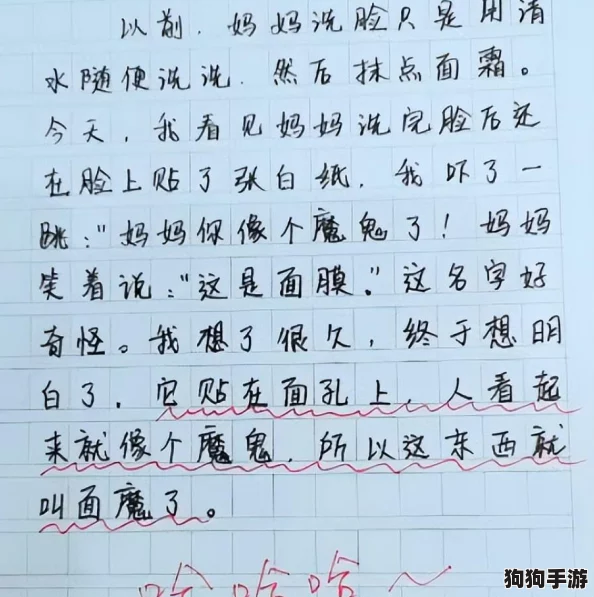 以前，妈妈洗脸只是用清
水随便洗洗，然后抹点面霜。
今天，我看见妈妈洗完脸后还
在脸上贴了张白纸，我吓了一
跳："妈妈你像个魔鬼了！妈妈
笑着说："这是面膜。"这名字好
奇怪。我想了很久，终于想明
白了，它贴在面孔上，人看起
来就像个魔鬼，所以这东西就
叫面魔了。
哈哈哈～
狗狗手游